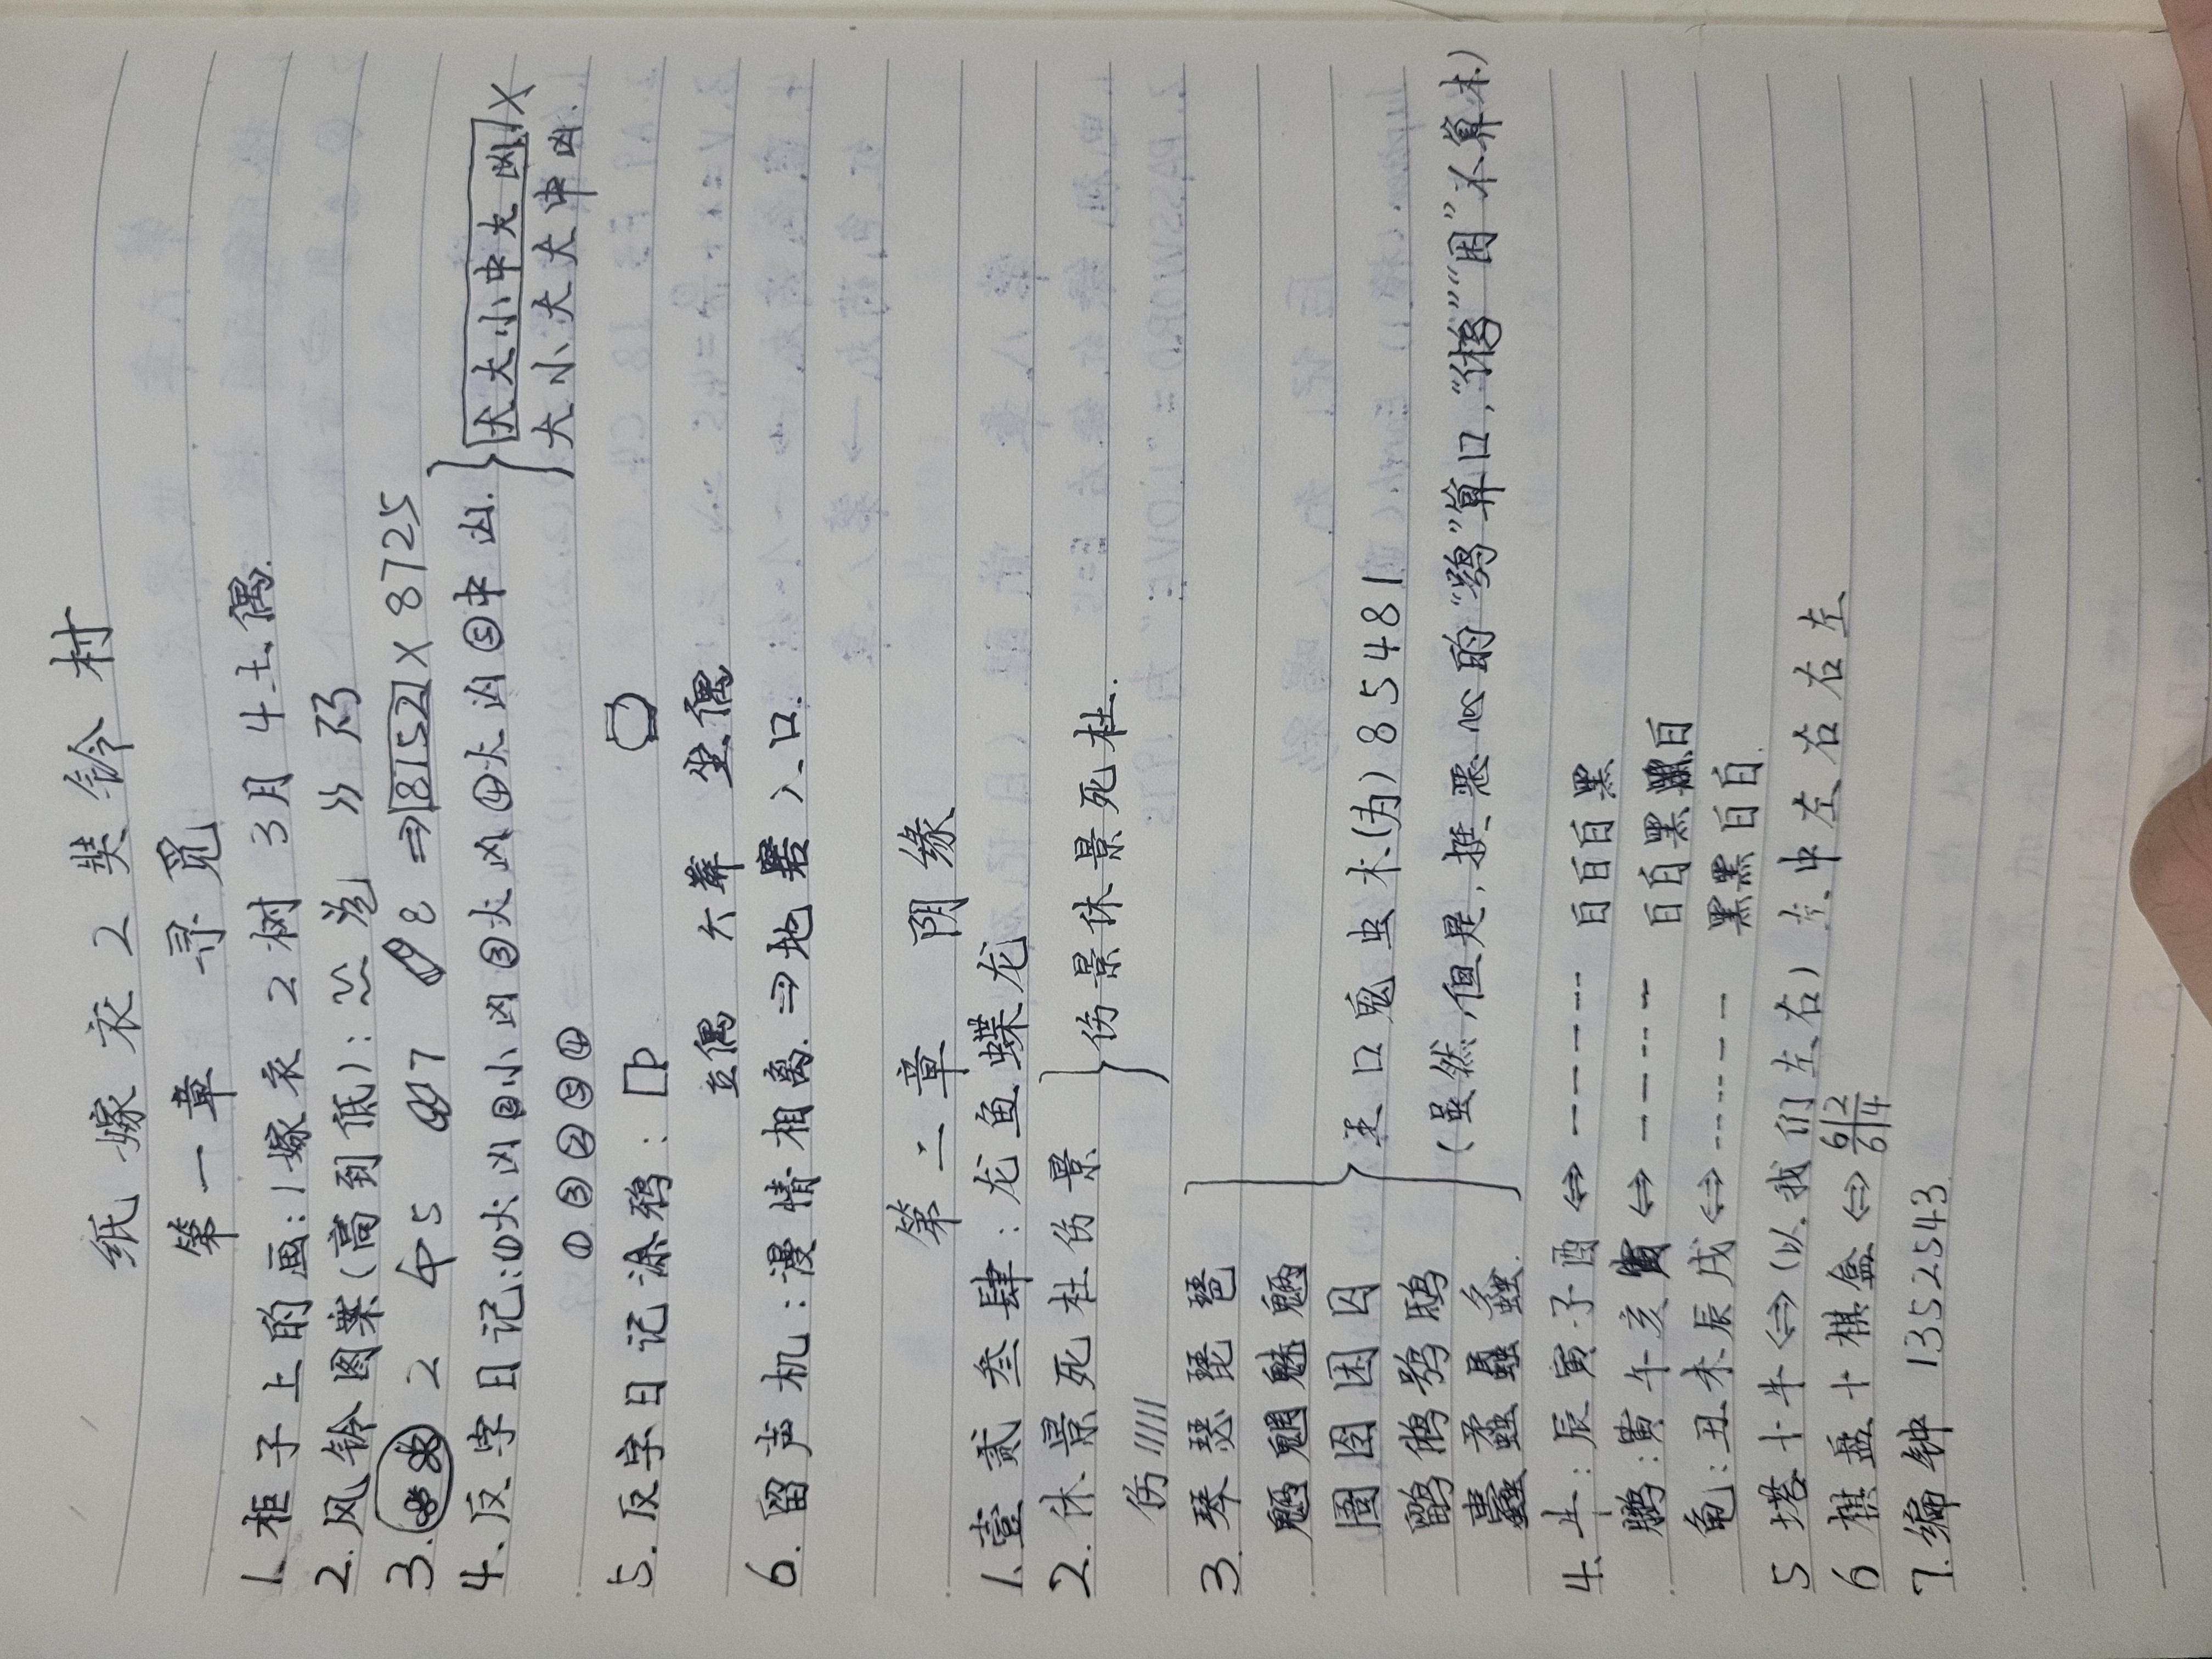 纸嫁衣2奘铃村
第一章 寻觅
1.柜子上的画:1嫁衣2树3月4土偶.
2.风铃图案(高到低):
3. 2 5 7 8⇒8152×8725
4.反字日记:①大凶②小凶③大凶④大凶⑤中凶.
大大小中大凶×
大小大大中凶.
①③②⑤④
5.反字日记涂鸦:
立偶 六葬 坐偶
6.留声机:漫情相离.⇒地窖入口.
第二章 阴缘
1.壹贰叁肆:龙鱼蝶龙
2.休景死杜伤景
伤/////
伤景休景死杜.
3.琴瑟琵琶
魍魅魉
困囚
王口鬼虫木(为)85481
(虽然,但是,挺恶心的"鹗"算口,"鸺""困"不算木)
4.牛:辰寅子酉⇔------ 白白白黑
鹏:黄午亥寅⇔------ 白白黑黑白
龟:丑未辰戌⇔------ 黑黑白白.
5塔十牛⇔(以我们左右)左中左右右左
6棋盘十棋盒⇔6 2 6 4
7.编钟 1352543